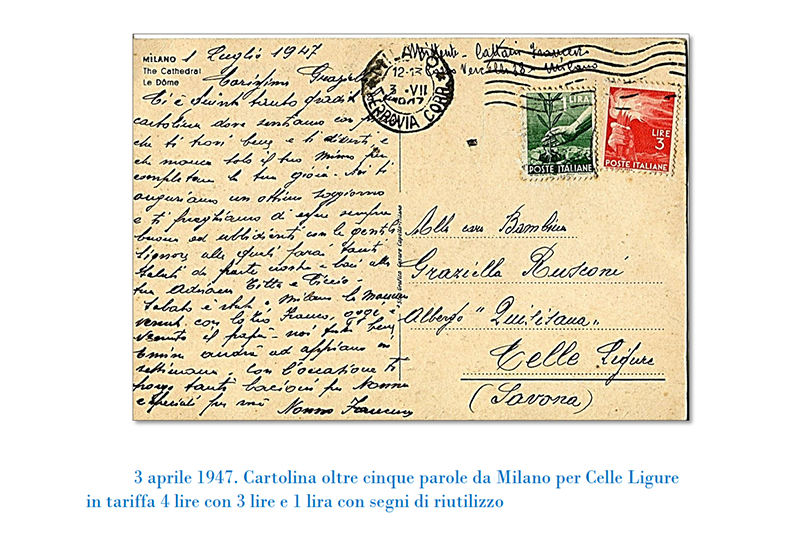 MILANO
The Cathedral
Le Dôme
1 Luglio 1947
Carissima
cartolina dove sentiamo con
che ti trovi bene e ti diverti e
che manca solo il tuo Mimo per
completare la tua gioia. Noi ti
auguriamo un ottimo soggiorno
e ti preghiamo di essere sempre
buona ed ubbidiente con le gentili
Signore alle quali farai tanti
saluti da parte nostra e baci alla
tua Adriana
Sabato è stata a Milano la mamma
venuta con lo zio Franco, oggi è
venuto il papà - noi tutti bene
andrà ad Appiano in
settimana, con l'occasione ti
tanti bacioni per Nonna
e speciali per me Nonno Francesco
Mittente - Francesco
Vercelli - Milano
12-13
3 · VII
1947
FERROVIA CORR.
1 LIRA
POSTE ITALIANE
LIRE
3
POSTE ITALIANE
Alla cara Bambina
Graziella Rusconi
Albergo "Quisisana"
Celle Ligure
(Savona)
3 aprile 1947. Cartolina oltre cinque parole da Milano per Celle Ligure
in tariffa 4 lire con 3 lire e 1 lira con segni di riutilizzo